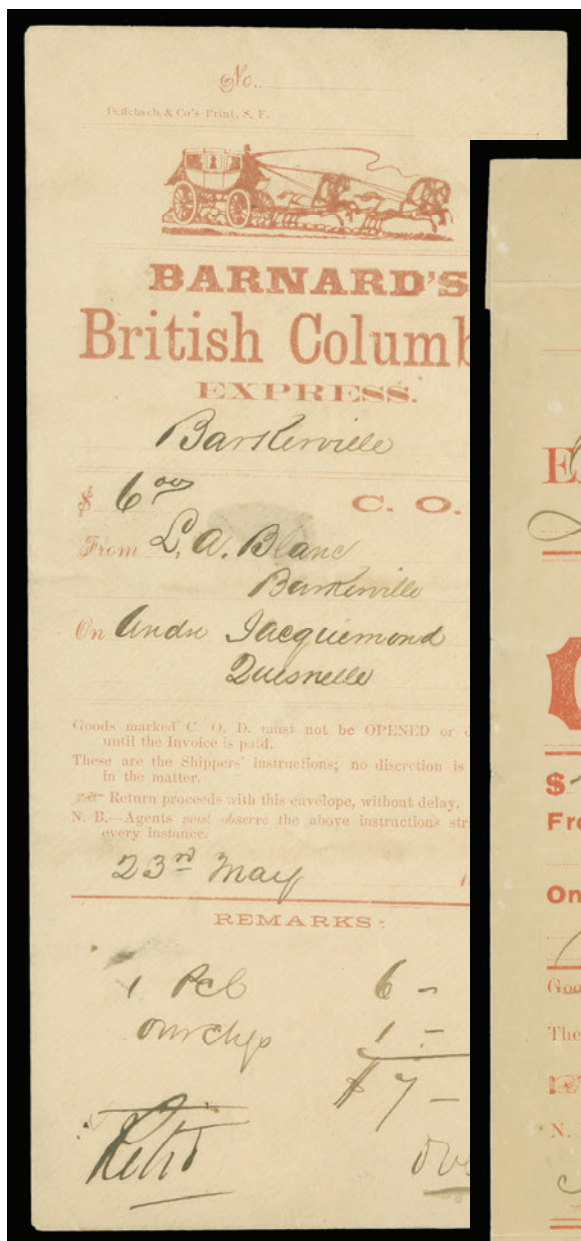 No.
Deffebach & Co's Print, S. F.
BARNARD'S
British Columb
EXPRESS.
Barkerville
$ 6 00 C. O.
From L. A. Blanc
Barkerville
On Andre Jacquemond
Quesnelle
Goods marked C. O. D. must not be OPENED or d
until the Invoice is paid.
These are the Shippers' instructions; no discretion is
in the matter.
Return proceeds with this envelope, without delay.
N. B.—Agents must observe the above instructions stri
every instance.
23rd May 1
REMARKS:
1 Pcl 6 -
our chgs 1 -
$ 7 -
E
$
Fro
On
Goo
The
N.